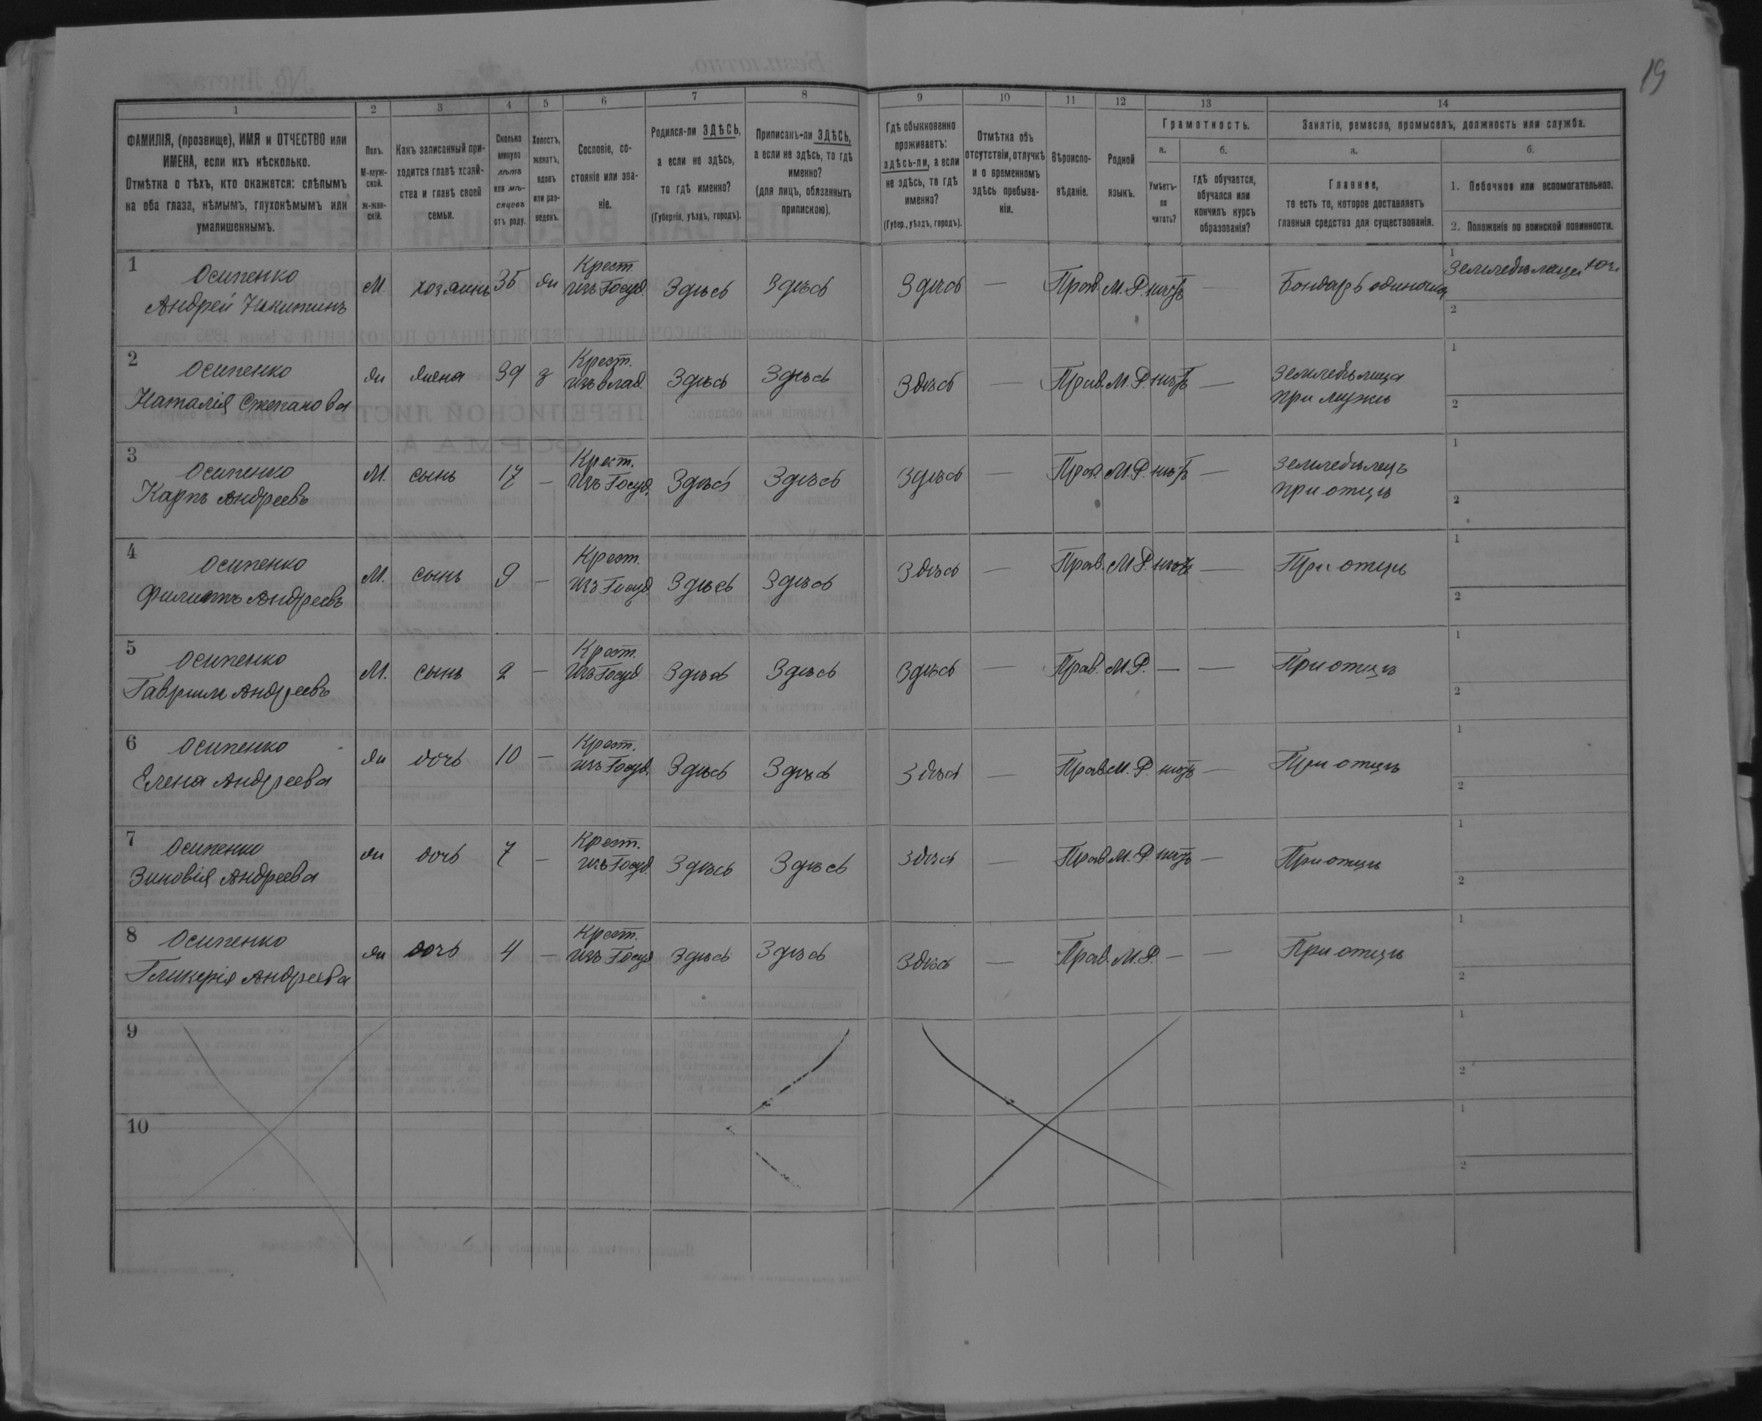 19
1 2 3 4 5 6 7 8 9 10 11 12 13 14
ФАМИЛІЯ, (прозвище), ИМЯ и ОТЧЕСТВО или
ИМЕНА, если ихъ нѣсколько.
Отмѣтка о тѣхъ, кто окажется: слѣпымъ
на оба глаза, нѣмымъ, глухонѣмымъ или
умалишеннымъ.
Полъ.
М-муж-
ской.
ж-жен-
скій.
Какъ записанный при-
ходится главѣ хозяй-
ства и главѣ своей
семьи.
Сколько
минуло
лѣтъ
или мѣ-
сяцевъ
отъ роду.
Холостъ,
женатъ,
вдовъ
или раз-
веденъ.
Сословіе, со-
стояніе или зва-
ніе.
Родился-ли ЗДѢСЬ,
а если не здѣсь,
то гдѣ именно?
(Губернія, уѣздъ, городъ).
Приписанъ-ли ЗДѢСЬ,
а если не здѣсь, то гдѣ
именно?
(для лицъ, обязанныхъ
припискою).
Гдѣ обыкновенно
проживаетъ:
здѣсь-ли, а если
не здѣсь, то гдѣ
именно?
(Губер., уѣздъ, городъ).
Отмѣтка объ
отсутствіи, отлучкѣ
и о временномъ
здѣсь пребыва-
ніи.
Вѣроиспо-
вѣданіе.
Родной
языкъ.
Грамотность.
а.
Умѣетъ-
ли
читать?
б.
гдѣ обучается,
обучался или
кончилъ курсъ
образованія?
Занятіе, ремесло, промыселъ, должность или служба.
а.
Главное,
то есть то, которое доставляетъ
главныя средства для существованія.
б.
1. Побочное или вспомогательное.
2. Положеніе по воинской повинности.
1 Осипенко
Андрей Никитинъ
М хозяинъ 35 ж Крест. изъ Госуд. Здѣсь Здѣсь Здѣсь — Прав. М.Р. нѣтъ — Бондарь одиночка
1 Земледѣлецъ
2
2 Осипенко
Наталія Степанова
ж жена 39 з Крест. изъ влад. Здѣсь Здѣсь Здѣсь — Прав. М.Р. нѣтъ — Земледѣлица при мужѣ
1
2
3 Осипенко
Карпъ Андреевъ
М. сынъ 17 — Крест. изъ Госуд. Здѣсь Здѣсь Здѣсь — Прав. М.Р. нѣтъ — Земледѣлецъ при отцѣ
1
2
4 Осипенко
Филиппъ Андреевъ
М. сынъ 9 — Крест. изъ Госуд. Здѣсь Здѣсь Здѣсь — Прав. М.Р. нѣтъ — При отцѣ
1
2
5 Осипенко
Гаврiилъ Андреевъ
М. сынъ 2 — Крест. изъ Госуд. Здѣсь Здѣсь Здѣсь — Прав. М.Р. — — При отцѣ
1
2
6 Осипенко
Елена Андреева
ж дочь 10 — Крест. изъ Госуд. Здѣсь Здѣсь Здѣсь — Прав. М.Р. нѣтъ — При отцѣ
1
2
7 Осипенко
Зиновія Андреева
ж дочь 7 — Крест. изъ Госуд. Здѣсь Здѣсь Здѣсь — Прав. М.Р. нѣтъ — При отцѣ
1
2
8 Осипенко
Гликерія Андреева
ж дочь 4 — Крест. изъ Госуд. Здѣсь Здѣсь Здѣсь — Прав. М.Р. — — При отцѣ
1
2
9
1
2
10
1
2